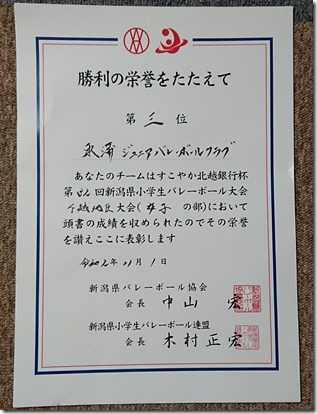 勝利の栄誉をたたえて
第 三 位
ジュニアバレーボールクラブ
あなたのチームはすこやか北越銀行杯
第 回新潟県小学生バレーボール大会
下越地区大会( の部)において
頭書の成績を収められたのでその栄誉
を讃えここに表彰します
令和2年11月1日
新潟県バレーボール協会
会長 中山 宏
新潟県小学生バレーボール連盟
会長 木村正宏